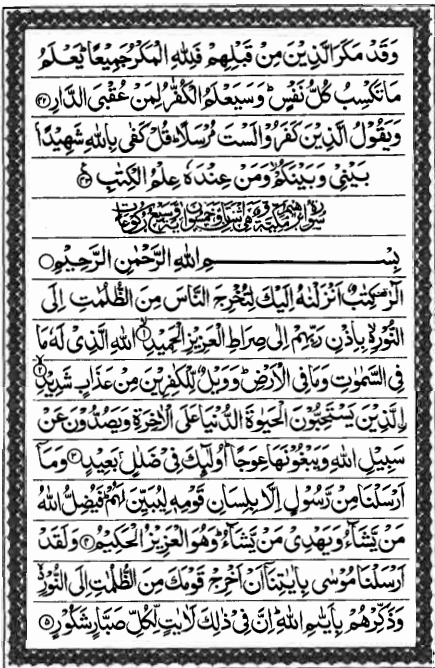 وَقَدْ مَكَرَ الَّذِيْنَ مِنْ قَبْلِهِمْ فَلِلّٰهِ الْمَكْرُ جَمِيْعًا ؕ يَعْلَمُ
مَا تَكْسِبُ كُلُّ نَفْسٍ ؕ وَسَيَعْلَمُ الْكُفّٰرُ لِمَنْ عُقْبَى الدَّارِ ۝۴۲
وَيَقُوْلُ الَّذِيْنَ كَفَرُوْا لَسْتَ مُرْسَلًا ؕ قُلْ كَفٰى بِاللّٰهِ شَهِيْدًۢا
بَيْنِيْ وَبَيْنَكُمْ ۙ وَمَنْ عِنْدَهٗ عِلْمُ الْكِتٰبِ ۝۴۳
بِسْمِ اللّٰهِ الرَّحْمٰنِ الرَّحِيْمِ ۝
الٓرٰ ۫ كِتٰبٌ اَنْزَلْنٰهُ اِلَيْكَ لِتُخْرِجَ النَّاسَ مِنَ الظُّلُمٰتِ اِلَى
النُّوْرِ ۙ۬ بِاِذْنِ رَبِّهِمْ اِلٰى صِرَاطِ الْعَزِيْزِ الْحَمِيْدِ ۝۱ اللّٰهِ الَّذِيْ لَهٗ مَا
فِي السَّمٰوٰتِ وَمَا فِي الْاَرْضِ ؕ وَوَيْلٌ لِّلْكٰفِرِيْنَ مِنْ عَذَابٍ شَدِيْدِ ۝۲
ۣالَّذِيْنَ يَسْتَحِبُّوْنَ الْحَيٰوةَ الدُّنْيَا عَلَى الْاٰخِرَةِ وَيَصُدُّوْنَ عَنْ
سَبِيْلِ اللّٰهِ وَيَبْغُوْنَهَا عِوَجًا ؕ اُولٰٓئِكَ فِيْ ضَلٰلٍۭ بَعِيْدٍ ۝۳ وَمَاۤ
اَرْسَلْنَا مِنْ رَّسُوْلٍ اِلَّا بِلِسَانِ قَوْمِهٖ لِيُبَيِّنَ لَهُمْ ؕ فَيُضِلُّ اللّٰهُ
مَنْ يَّشَآءُ وَيَهْدِيْ مَنْ يَّشَآءُ ؕ وَهُوَ الْعَزِيْزُ الْحَكِيْمُ ۝۴ وَلَقَدْ
اَرْسَلْنَا مُوْسٰى بِاٰيٰتِنَاۤ اَنْ اَخْرِجْ قَوْمَكَ مِنَ الظُّلُمٰتِ اِلَى النُّوْرِ ۙ۬
وَذَكِّرْهُمْ بِاَيّٰىمِ اللّٰهِ ؕ اِنَّ فِيْ ذٰلِكَ لَاٰيٰتٍ لِّكُلِّ صَبَّارٍ شَكُوْرٍ ۝۵